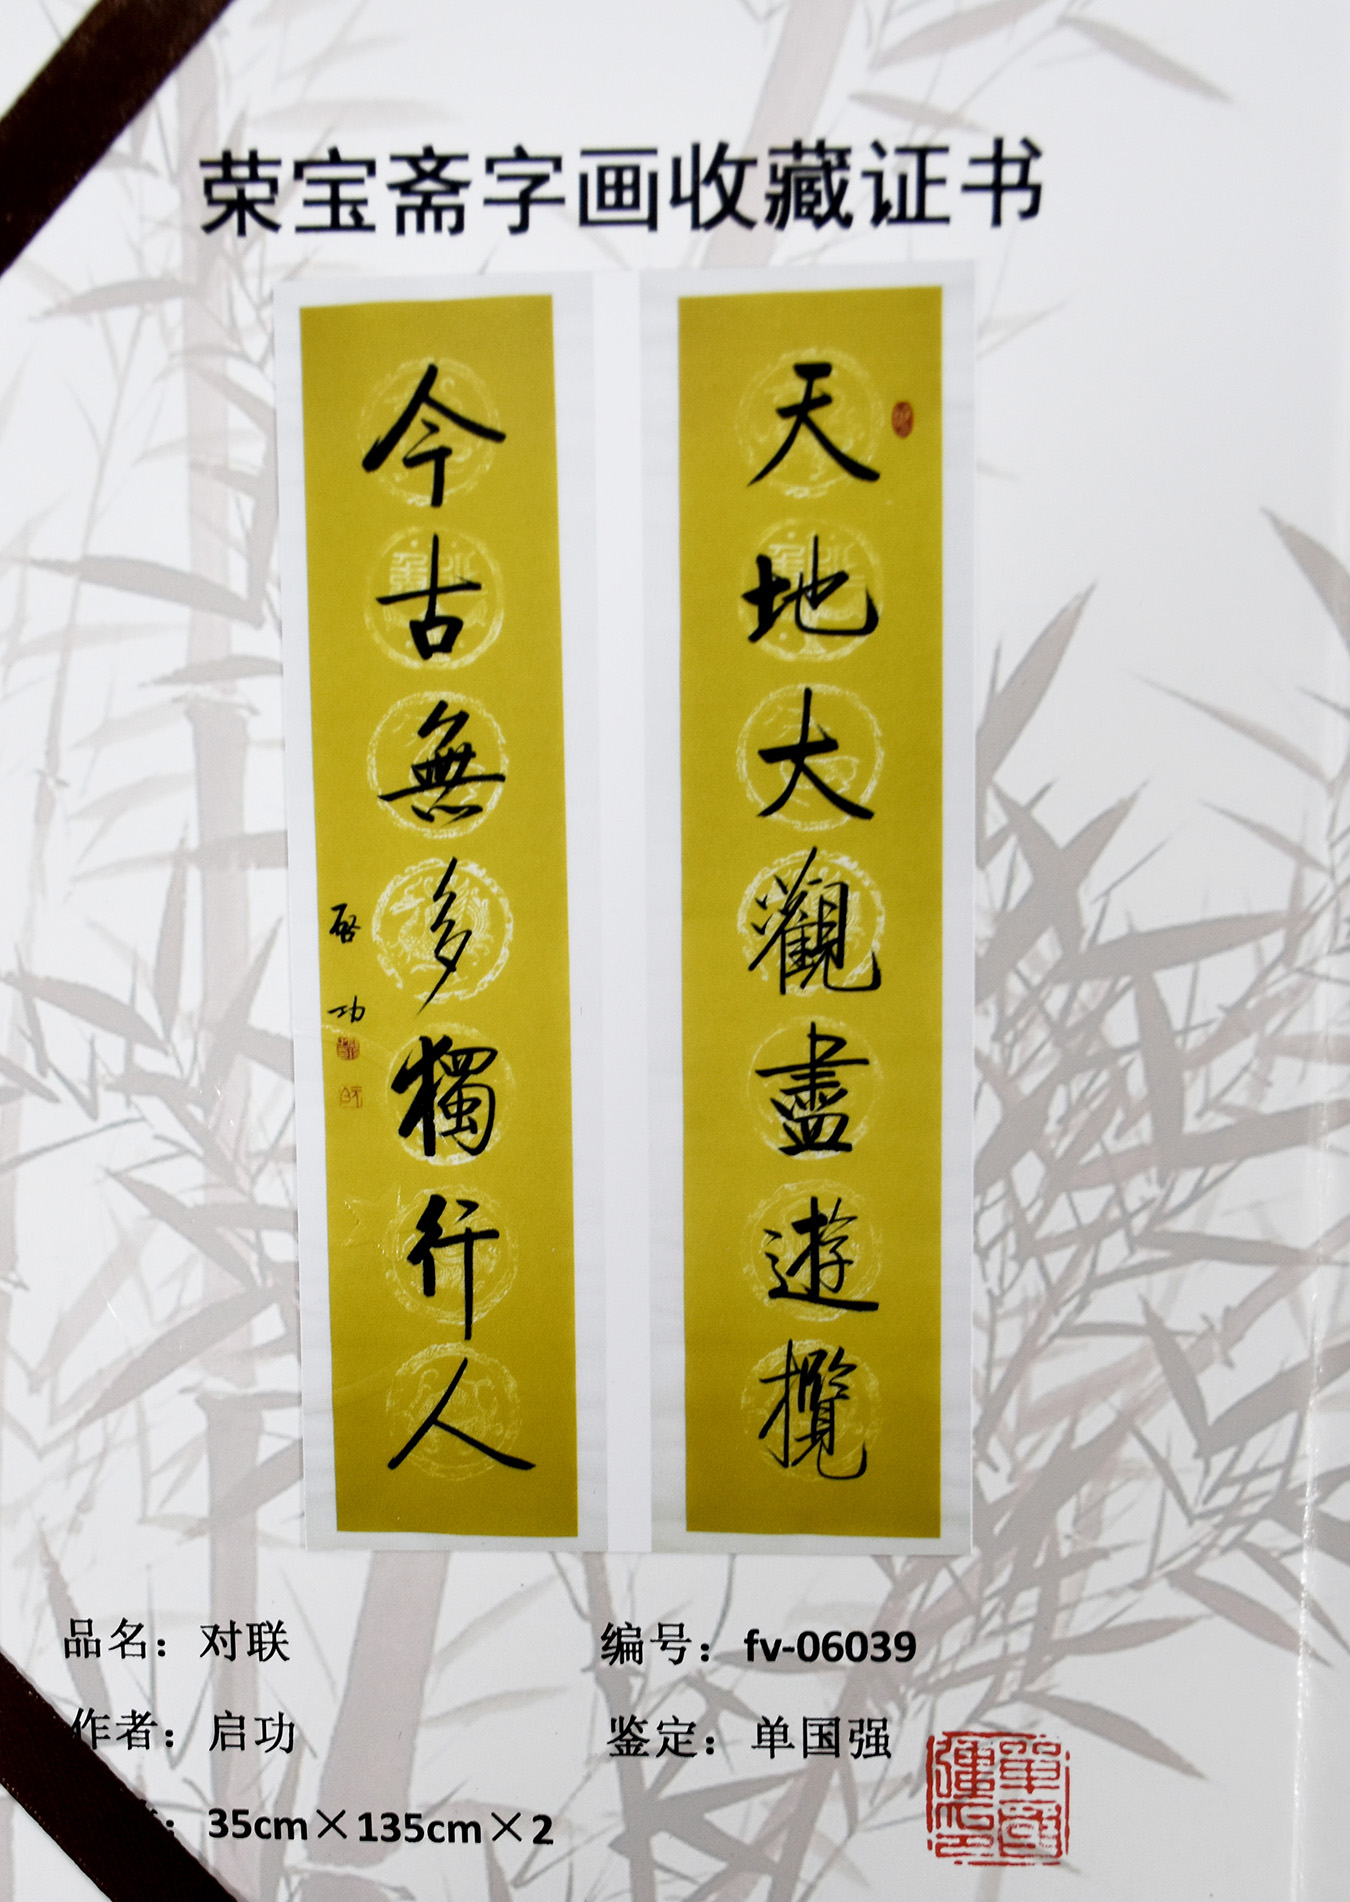 荣宝斋字画收藏证书
天地大觀盡遊攬
今古無多獨行人
啓功
品名：对联
编号：fv-06039
作者：启功
鉴定：单国强
35cm×135cm×2
單國強印